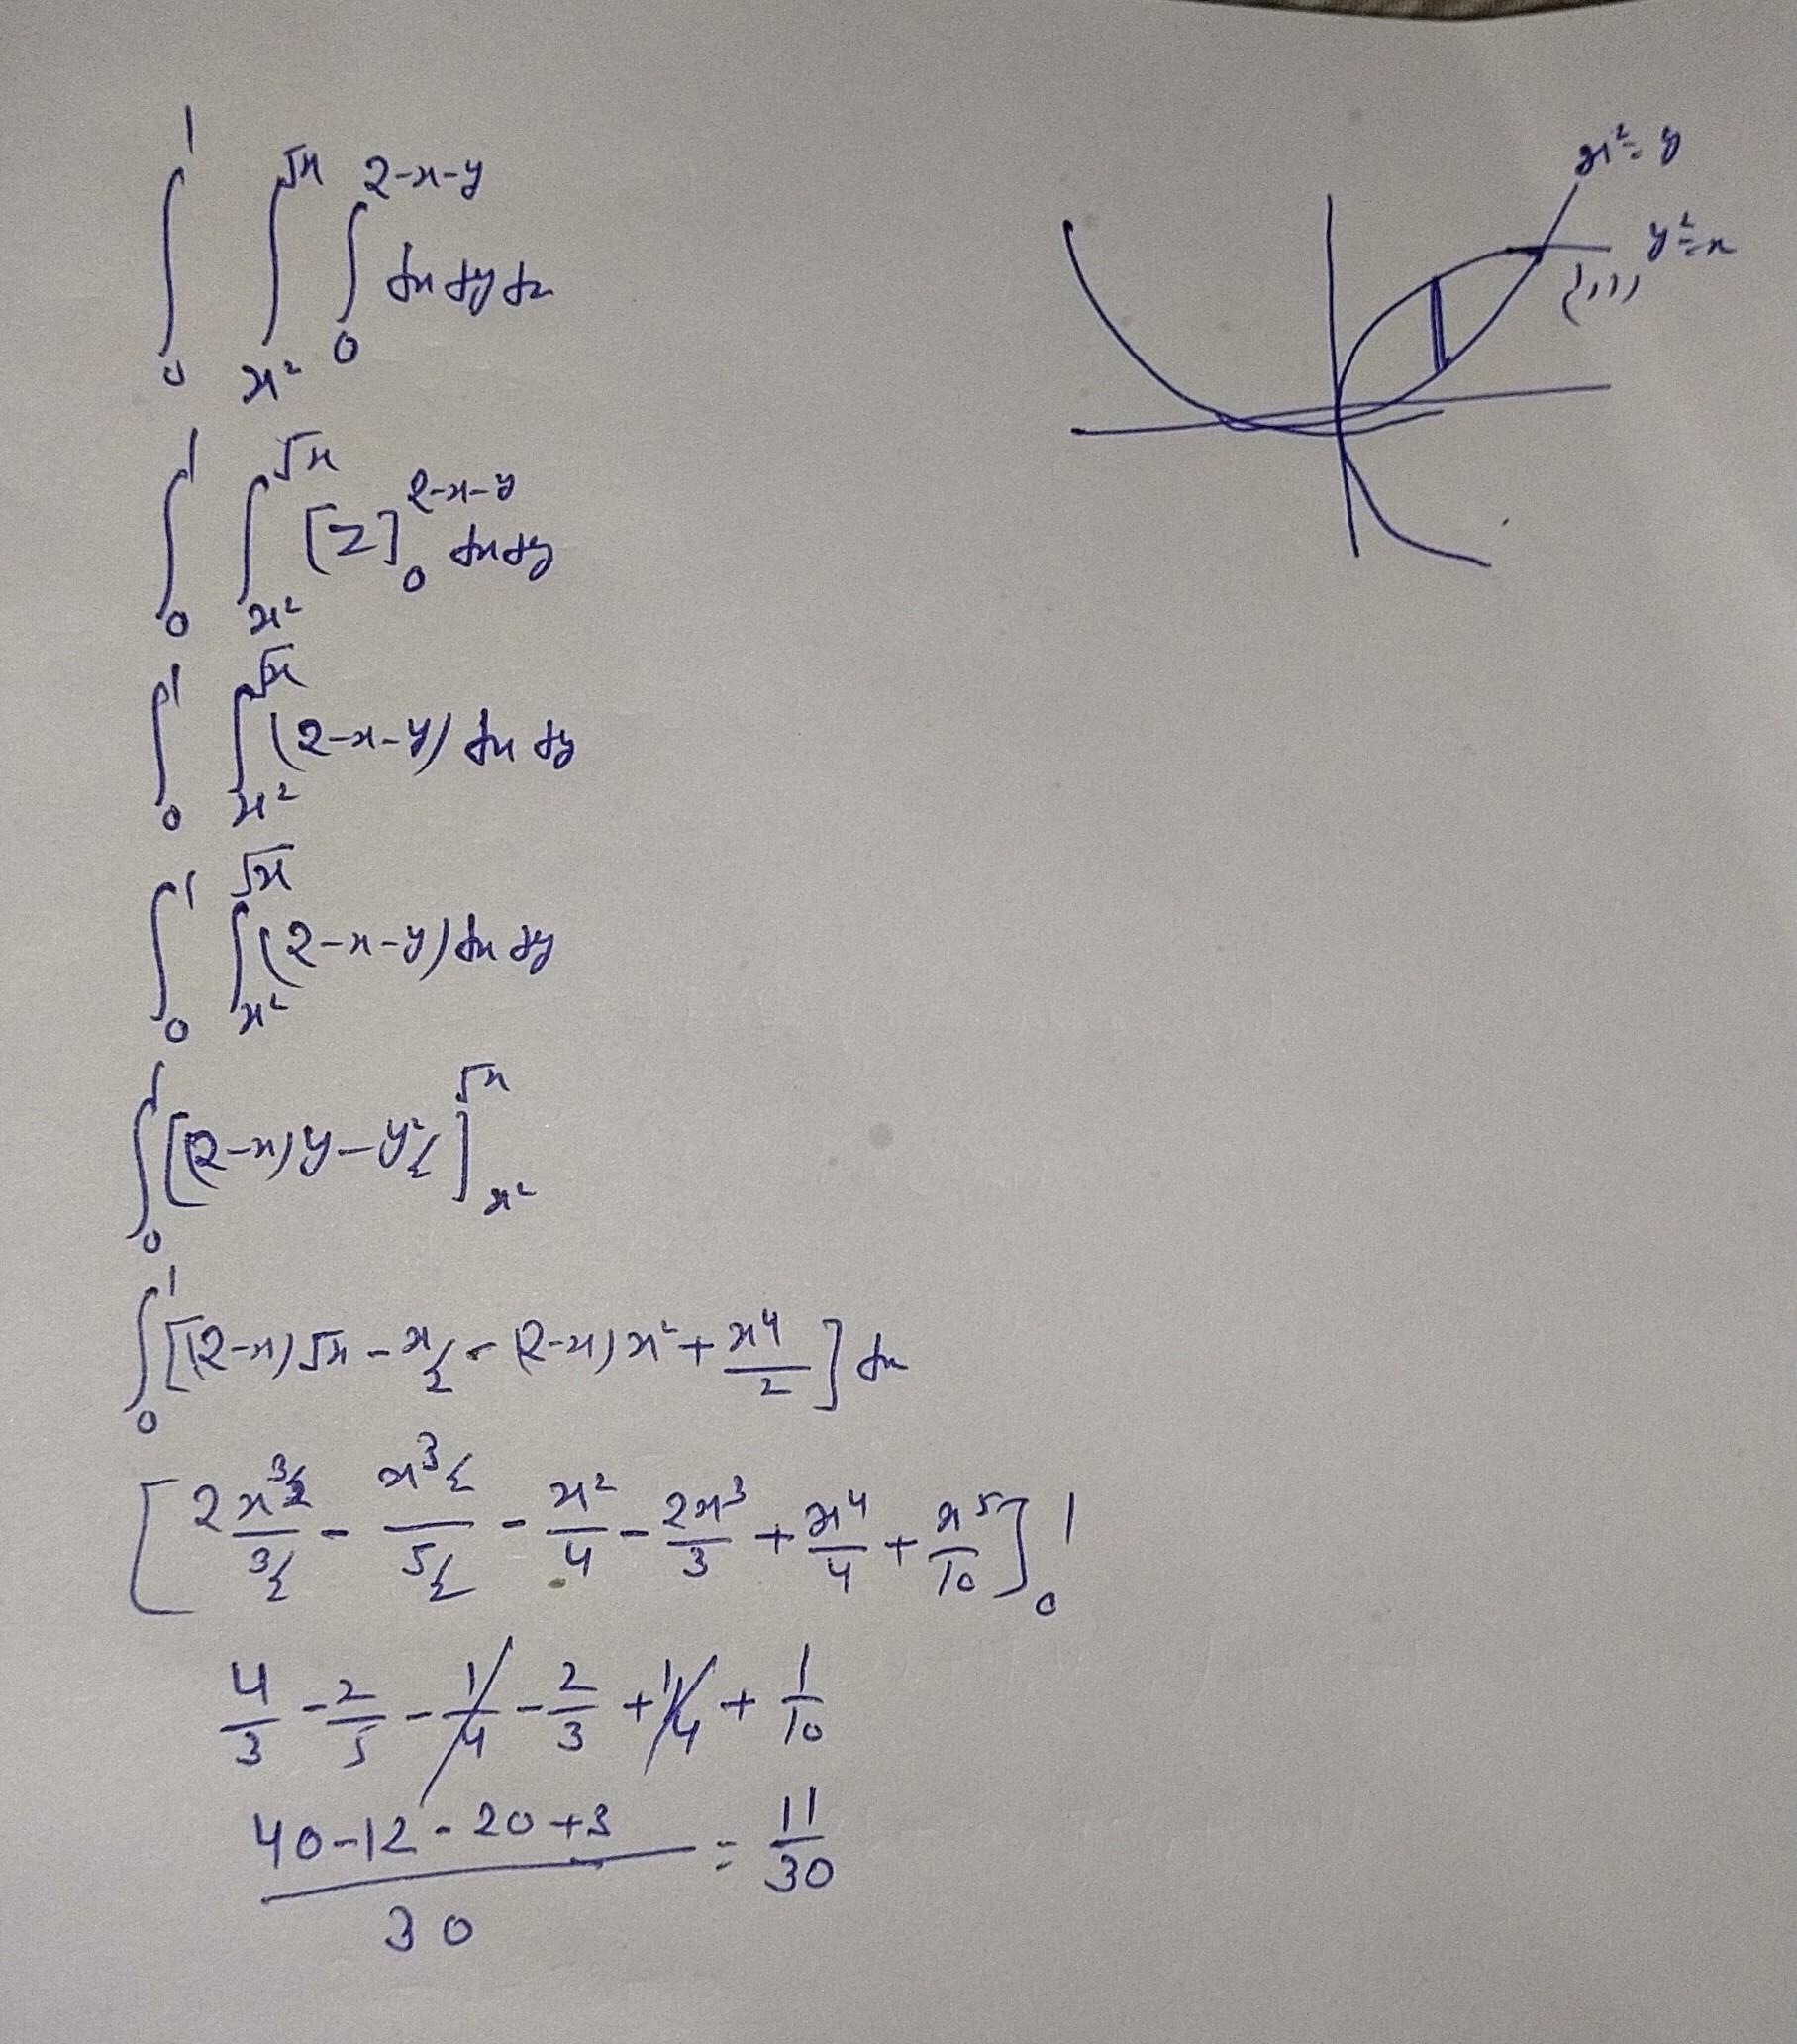 ∫₀¹ ∫_{x²}^{√x} ∫₀^{2-x-y} dx dy dz
∫₀¹ ∫_{x²}^{√x} [z]₀^{2-x-y} dx dy
∫₀¹ ∫_{x²}^{√x} (2-x-y) dx dy
∫₀¹ ∫_{x²}^{√x} (2-x-y) dx dy
∫₀¹ [(2-x)y - y²/2]_{x²}^{√x}
∫₀¹ [(2-x)√x - x/2 - (2-x)x² + x⁴/2] dx
[2x^{3/2}/(3/2) - x^{3/2}/(5/2) - x²/4 - 2x³/3 + x⁴/4 + x⁵/10]₀¹
4/3 - 2/5 - 1/4 - 2/3 + 1/4 + 1/10
(40-12-20+3)/30 = 11/30
x²=y
y²=x
(1,1)